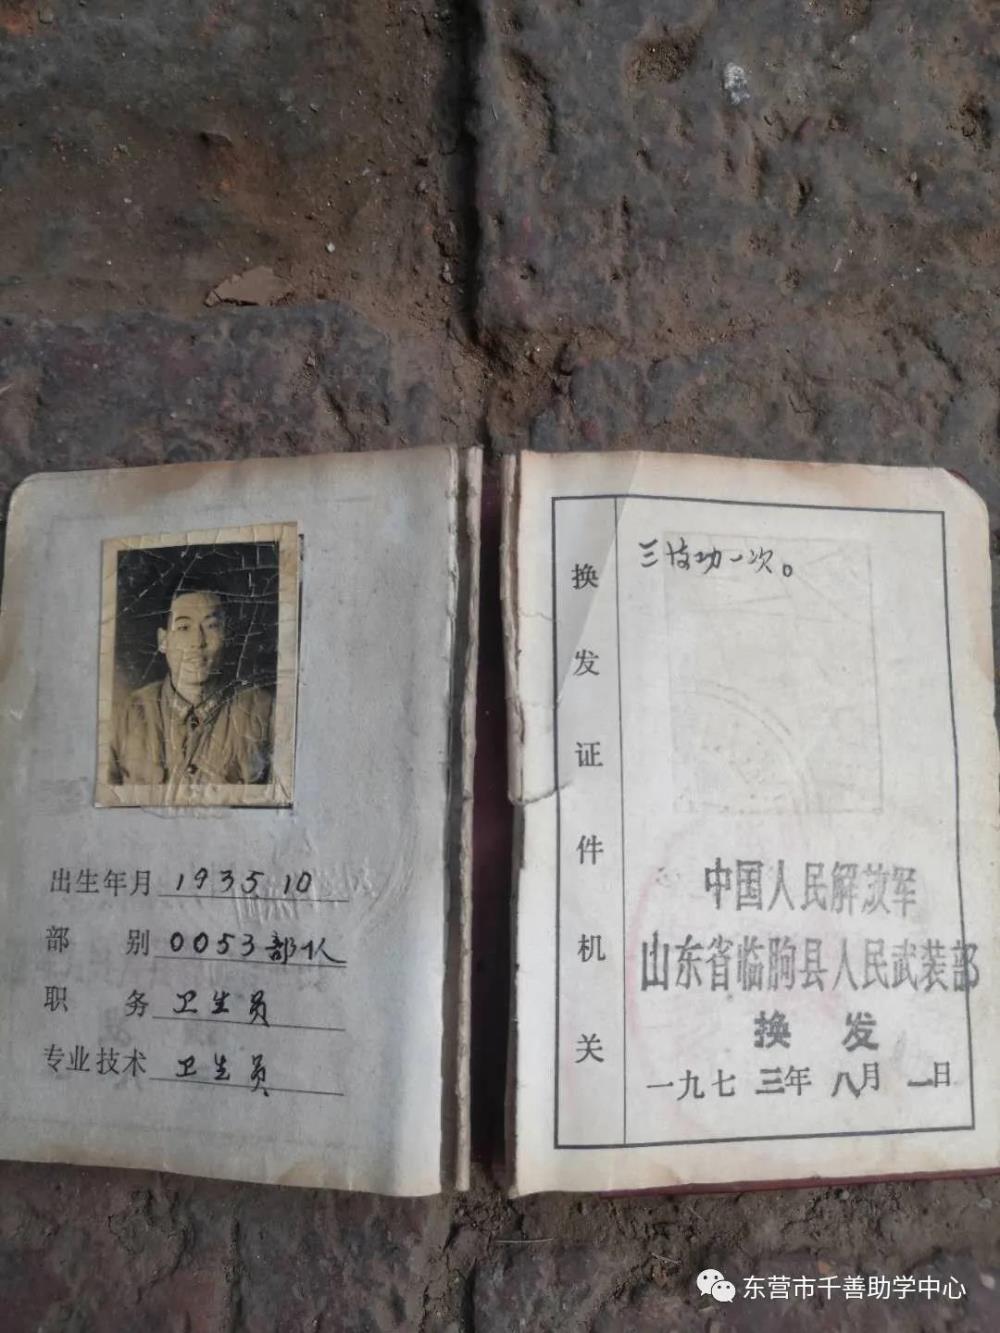 出生年月 1935 10
部别 0053部队
职务 卫生员
专业技术 卫生员
换发证件机关
三技功一次。
中国人民解放军
山东省临朐县人民武装部
换发
一九七三年八月一日
东营市千善助学中心